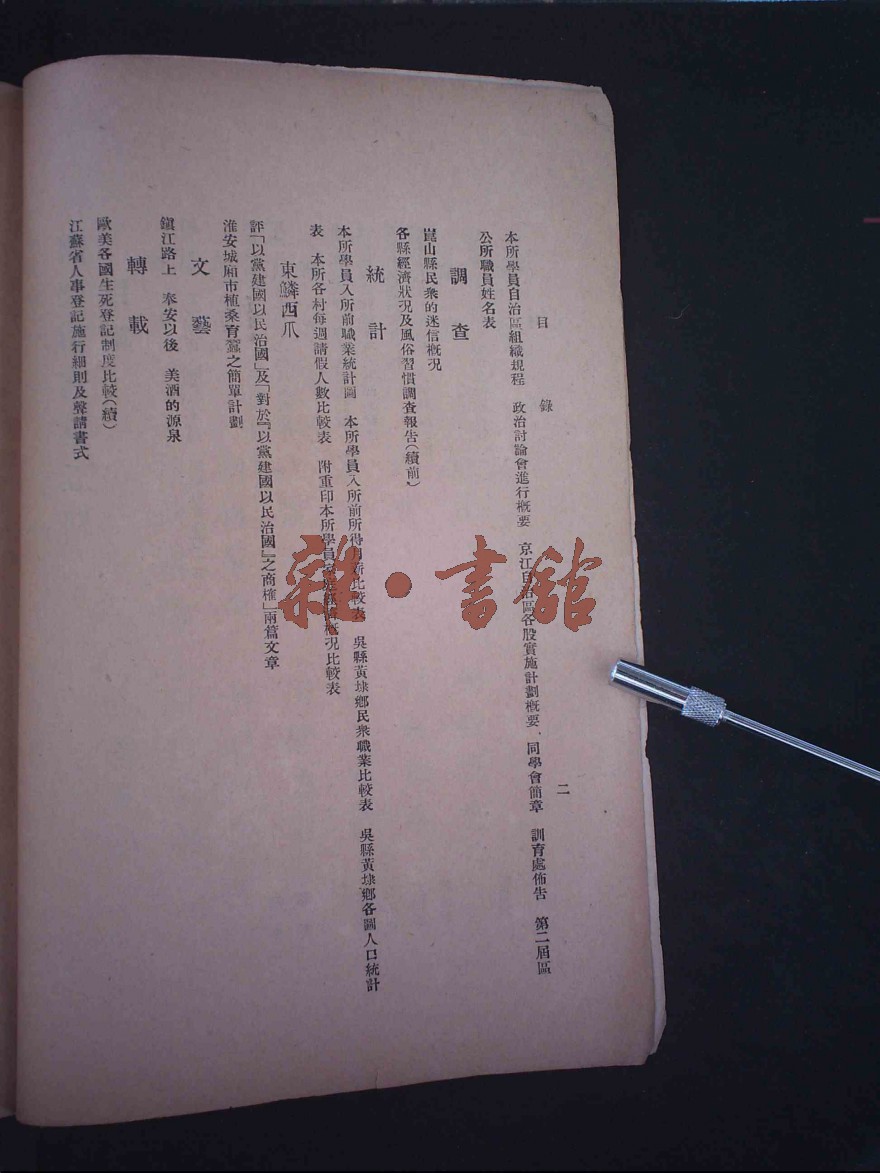 目錄
二
本所學員自治區組織規程　政治討論會進行概要　京江自治區各股實施計劃概要、同學會簡章　訓育處佈告　第二屆區
公所職員姓名表
調查
崑山縣民衆的迷信概況
各縣經濟狀況及風俗習慣調查報告(續前)
統計
本所學員入所前職業統計圖　本所學員入所前所得月薪比較表　吳縣黃埭鄉民衆職業比較表　吳縣黃埭鄉各圖人口統計
表　本所各村每週請假人數比較表　附重印本所學員概況比較表
東鱗西爪
評「以黨建國以民治國」及「對於『以黨建國以民治國』之商榷」兩篇文章
淮安城廂市植桑育蠶之簡單計劃
文藝
鎭江路上　奉安以後　美酒的源泉
轉載
歐美各國生死登記制度比較(續)
江蘇省人事登記施行細則及聲請書式
雜·書館